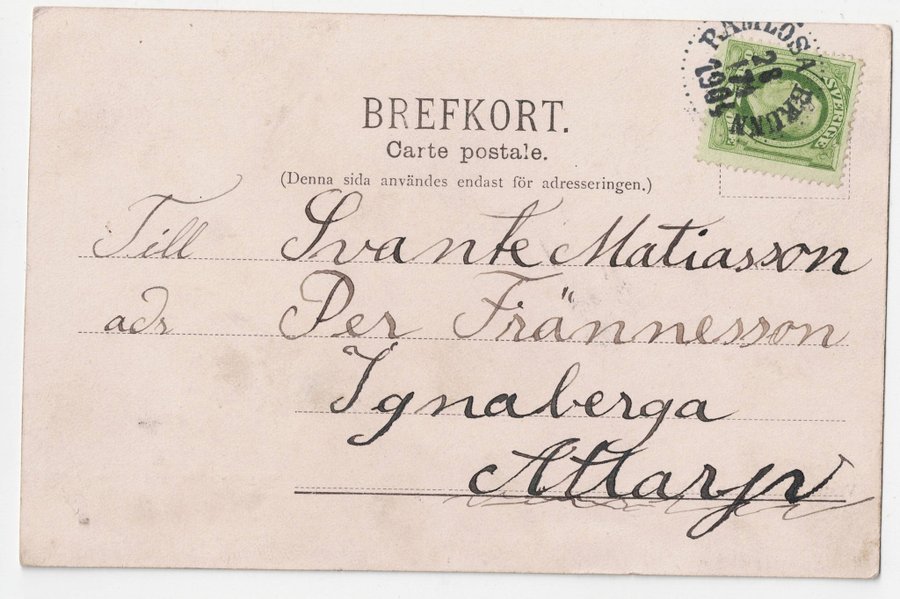 BREFKORT.
Carte postale.
(Denna sida användes endast för adresseringen.)
RAMLÖSA BRUNN
28
1904
SVERIGE
Till Svante Matiasson
adr Per Frännesson
Ignaberga
Attarp